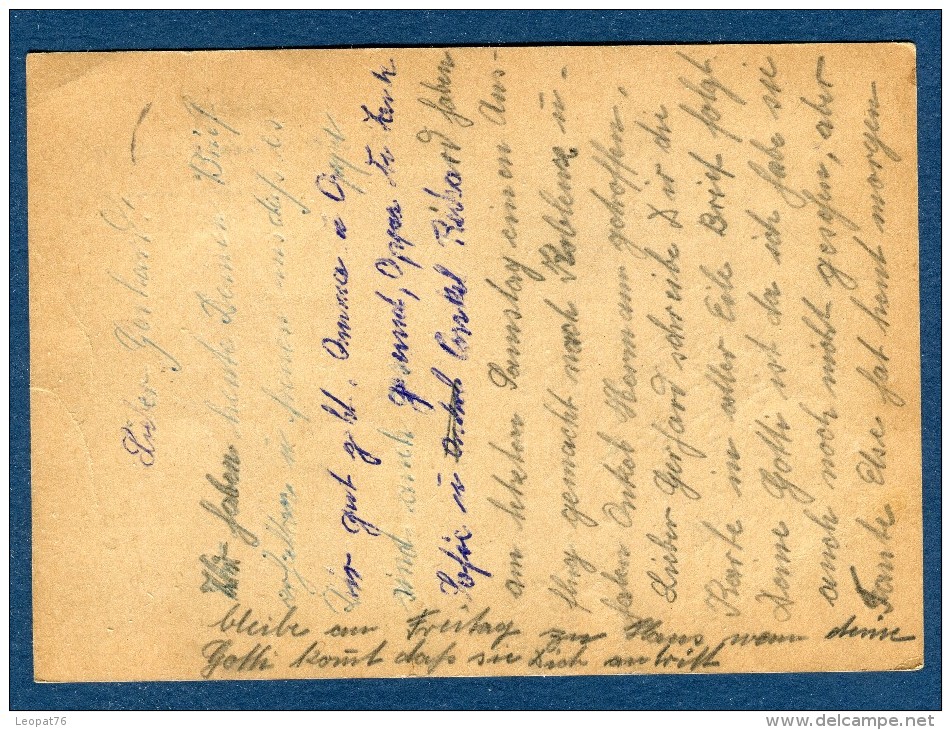 Lieber Gerhard!
Wir haben heute Deinen Brief
erhalten u. freuen uns daß es
Dir gut geht. Omma u Oppa
sind auch gesund, Oppa
Sofie u Onkel Richard haben
am letzten Samstag einen Aus-
flug gemacht nach Koblenz u-
haben Onkel Hermann getroffen.
Lieber Gerhard schreibe Dir die
Karte in aller Eile Brief folgt
Deine Gotti ist da ich habe sie
auch noch nicht gesehen, aber
Tante Else hat heut morgen
bleibe am Freitag zu Haus wenn deine
Gotti kom̄t daß sie Dich antrifft
Leopat76
www.delcampe.net